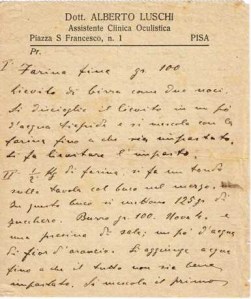 Dott. ALBERTO LUSCHI
Assistente Clinica Oculistica
Piazza S Francesco, n. 1 PISA
Pr.
I° Farina fine gr 100
lievito di birra come due noci.
Si discioglie il lievito in un pó
d'acqua tiepida e si mescola con la
farina fino a che sia impastato.
Si fa lievitare l'impasto.
II° 1/2 Kg di farina, si fa un tondo
sulla tavola col buco nel mezzo. In
questo buco si mettono 125 gr di
zucchero. Burro gr. 100. Uova 4. e
una presina di sale; un pó d'acqua
di fior d'arancio. Si aggiunge acqua
fino a che il tutto non sia bene
impastato. Si mescola il primo